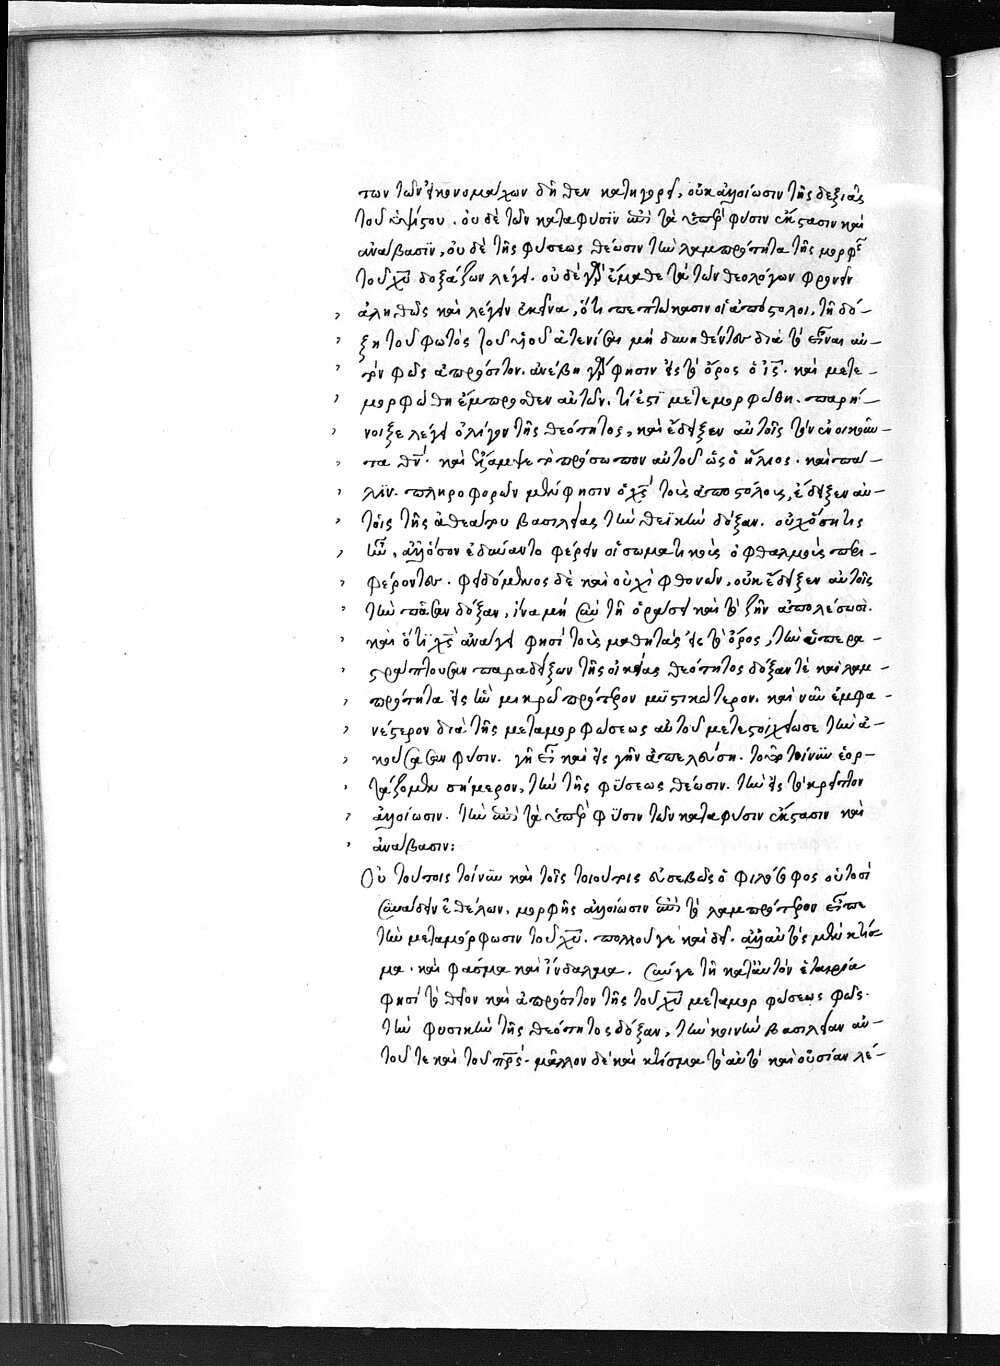 των τῶν εἰκονομάχων δῆθεν κατηγορεῖ, οὐκ ἀλλοίωσιν τῆς δεξιᾶς
τοῦ ὑψίστου. οὐδὲ τῶν κατὰ φύσιν ἐπὶ τὰ ὑπὲρ φύσιν ἔκστασιν καὶ
ἀνάβασιν, οὐδὲ τῆς φύσεως θέωσιν τὴν λαμπρότητα τῆς μορφῆς
τοῦ χυ δοξάζων λέγει. οὐδὲ γὰρ ἔμαθε τὰ τῶν θεολόγων φρονεῖν
ἀληθῶς καὶ λέγειν ἐκεῖνα, ὅτι πεπτώκασιν οἱ ἀπόστολοι, τῇ δό-
ξῃ τοῦ φωτὸς τοῦ υἱοῦ ἀτενίσαι μὴ δυνηθέντες διὰ τὸ εἶναι αὐ-
τὸν φῶς ἀπρόσιτον. ἀνέβη γάρ φησιν εἰς τὸ ὄρος ὁ ις. καὶ μετε-
μορφώθη ἔμπροσθεν αὐτῶν. τί ἐστι μετεμορφώθη. παρή-
νοιξε λέγει ὀλίγον τῆς θεότητος, καὶ ἔδειξεν αὐτοῖς τὸν ἐνοικοῦν-
τα θν. καὶ ἔλαμψε τὸ πρόσωπον αὐτοῦ ὡς ὁ ἥλιος. καὶ πά-
λιν. πληροφορῶν μέν φησιν ὁ χς τοὺς ἀποστόλους, ἔδειξεν αὐ-
τοῖς τῆς ἀθεάτου βασιλείας τὴν θεϊκὴν δόξαν. οὐχ ὅση τις
ἦν, ἀλλ' ὅσον ἐδύναντο φέρειν οἱ σωματικοὺς ὀφθαλμοὺς περι-
φέροντες. φειδόμενος δὲ καὶ οὐχὶ φθονῶν, οὐκ ἔδειξεν αὐτοῖς
τὴν πᾶσαν δόξαν, ἵνα μὴ σὺν τῇ ὁράσει καὶ τὸ ζῆν ἀπολέσωσι.
καὶ ὅτι χς ἀνάγει φησὶ τοὺς μαθητὰς εἰς τὸ ὄρος, τὴν ὑπερα-
στράπτουσαν παραδείξων τῆς οἰκείας θεότητος δόξαν τὲ καὶ λαμ-
πρότητα εἰς ἣν μικρῷ πρότερον μυστικώτερον. καὶ νῦν ἐμφα-
νέστερον διὰ τῆς μεταμορφώσεως αὐτοῦ μετεστοιχείωσε τὴν ἀ-
κούσασαν φύσιν. γῆ εἶ καὶ εἰς γῆν ἀπελεύσῃ. τοῦτο τοίνυν ἑορ-
τάζομεν σήμερον, τὴν τῆς φύσεως θέωσιν. τὴν εἰς τὸ κρεῖττον
ἀλλοίωσιν. τὴν ἐπὶ τὰ ὑπὲρ φύσιν τῶν κατὰ φύσιν ἔκστασιν καὶ
ἀνάβασιν:
Οὐ τούτοις τοίνυν καὶ τοῖς τοιούτοις εὐσεβῶς ὁ φιλόσοφος οὑτοσὶ
συνάδειν ἐθέλων, μορφῆς ἀλλοίωσιν ἐπὶ τὸ λαμπρότερον εἶπε
τὴν μεταμόρφωσιν τοῦ χυ. πολλοῦ γε καὶ δεῖ. ἀλλ' αὐτὸς μὲν κτίσ-
μα. καὶ φάσμα καὶ ἴνδαλμα. σύν γε τῇ κατ' αὐτὸν ἑταιρείᾳ
φησὶ τὸ θεῖον καὶ ἀπρόσιτον τῆς τοῦ χυ μεταμορφώσεως φῶς.
τὴν φυσικὴν τῆς θεότητος δόξαν, τὴν κοινὴν βασιλείαν αὐ-
τοῦ τε καὶ τοῦ πρς. μᾶλλον δὲ καὶ κτίσμα τὸ αὐτὸ καὶ οὐσίαν λέ-